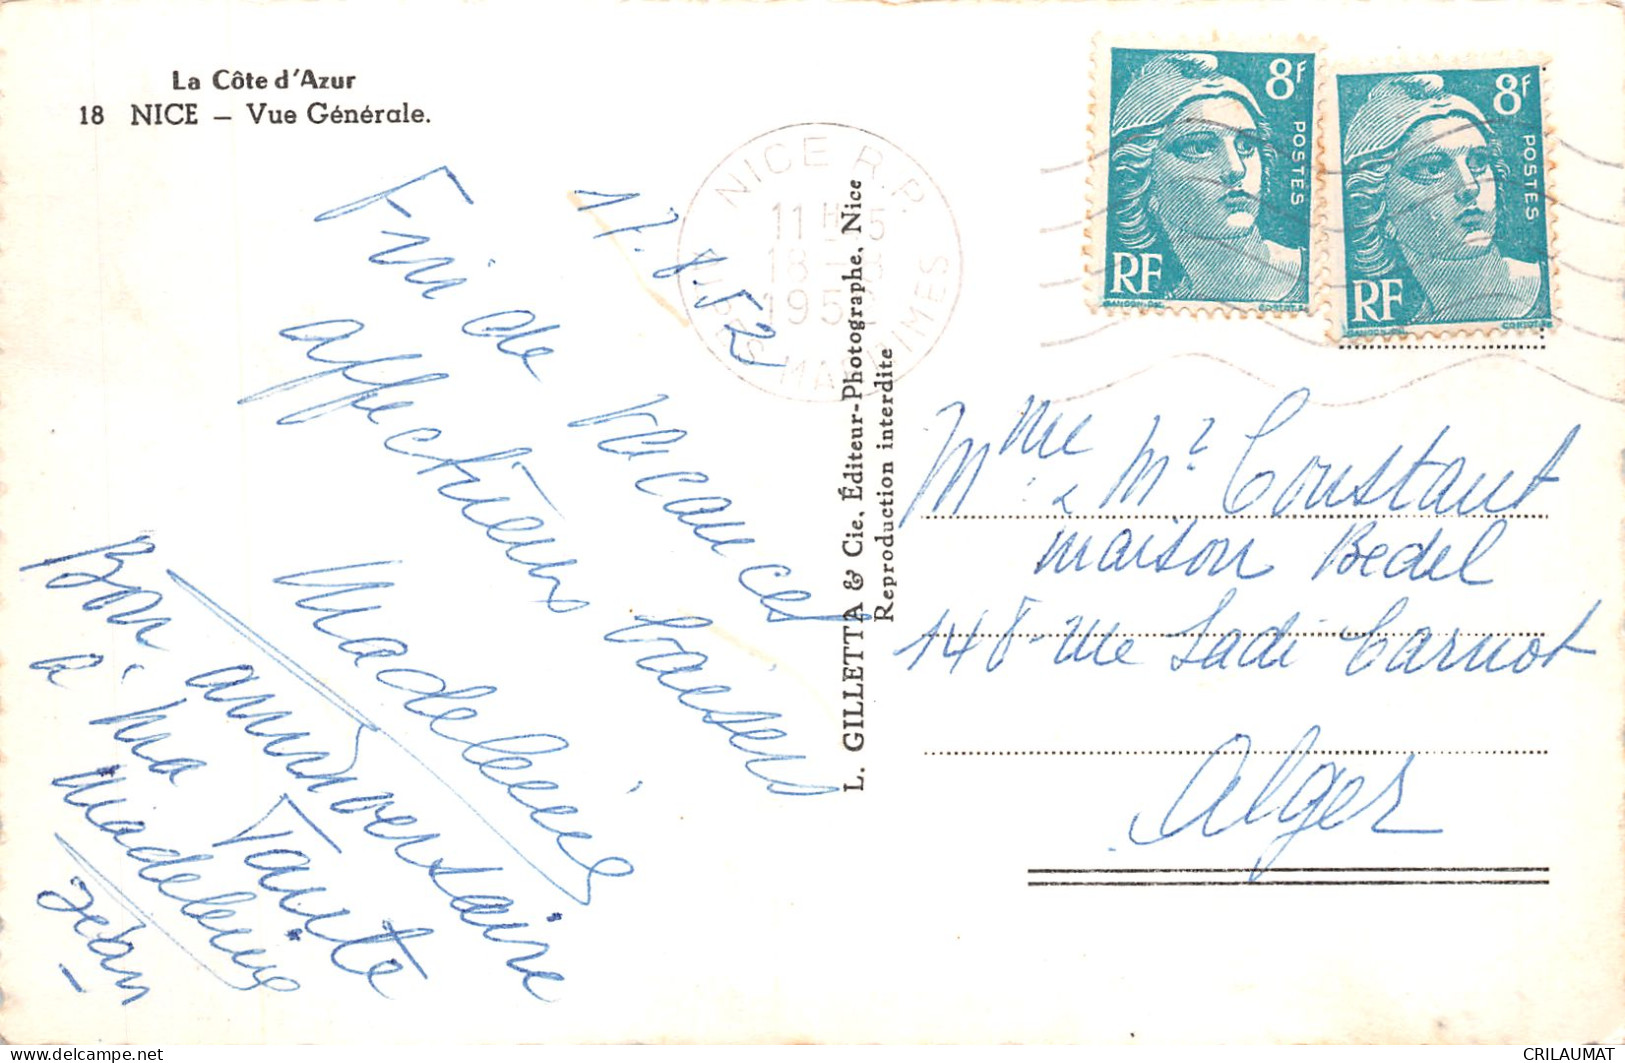 La Côte d'Azur
18 NICE – Vue Générale.
17.8.52
Fin de vacances
affectueux baisers
Madeleine
Bon anniversaire
à ma Tante
Madeleine
Jean
NICE R.P.
11 H
18
1952
ALPES MARITIMES
L. GILLETTA & Cie, Éditeur-Photographe, Nice
Reproduction interdite
8F
POSTES
RF
GANDON-DEL.
CORTOT.SC
8F
POSTES
RF
GANDON-DEL.
CORTOT.SC
Mme & Mr Constant
maison Bedel
148 rue Sadi Carnot
Alger
CRILAUMAT